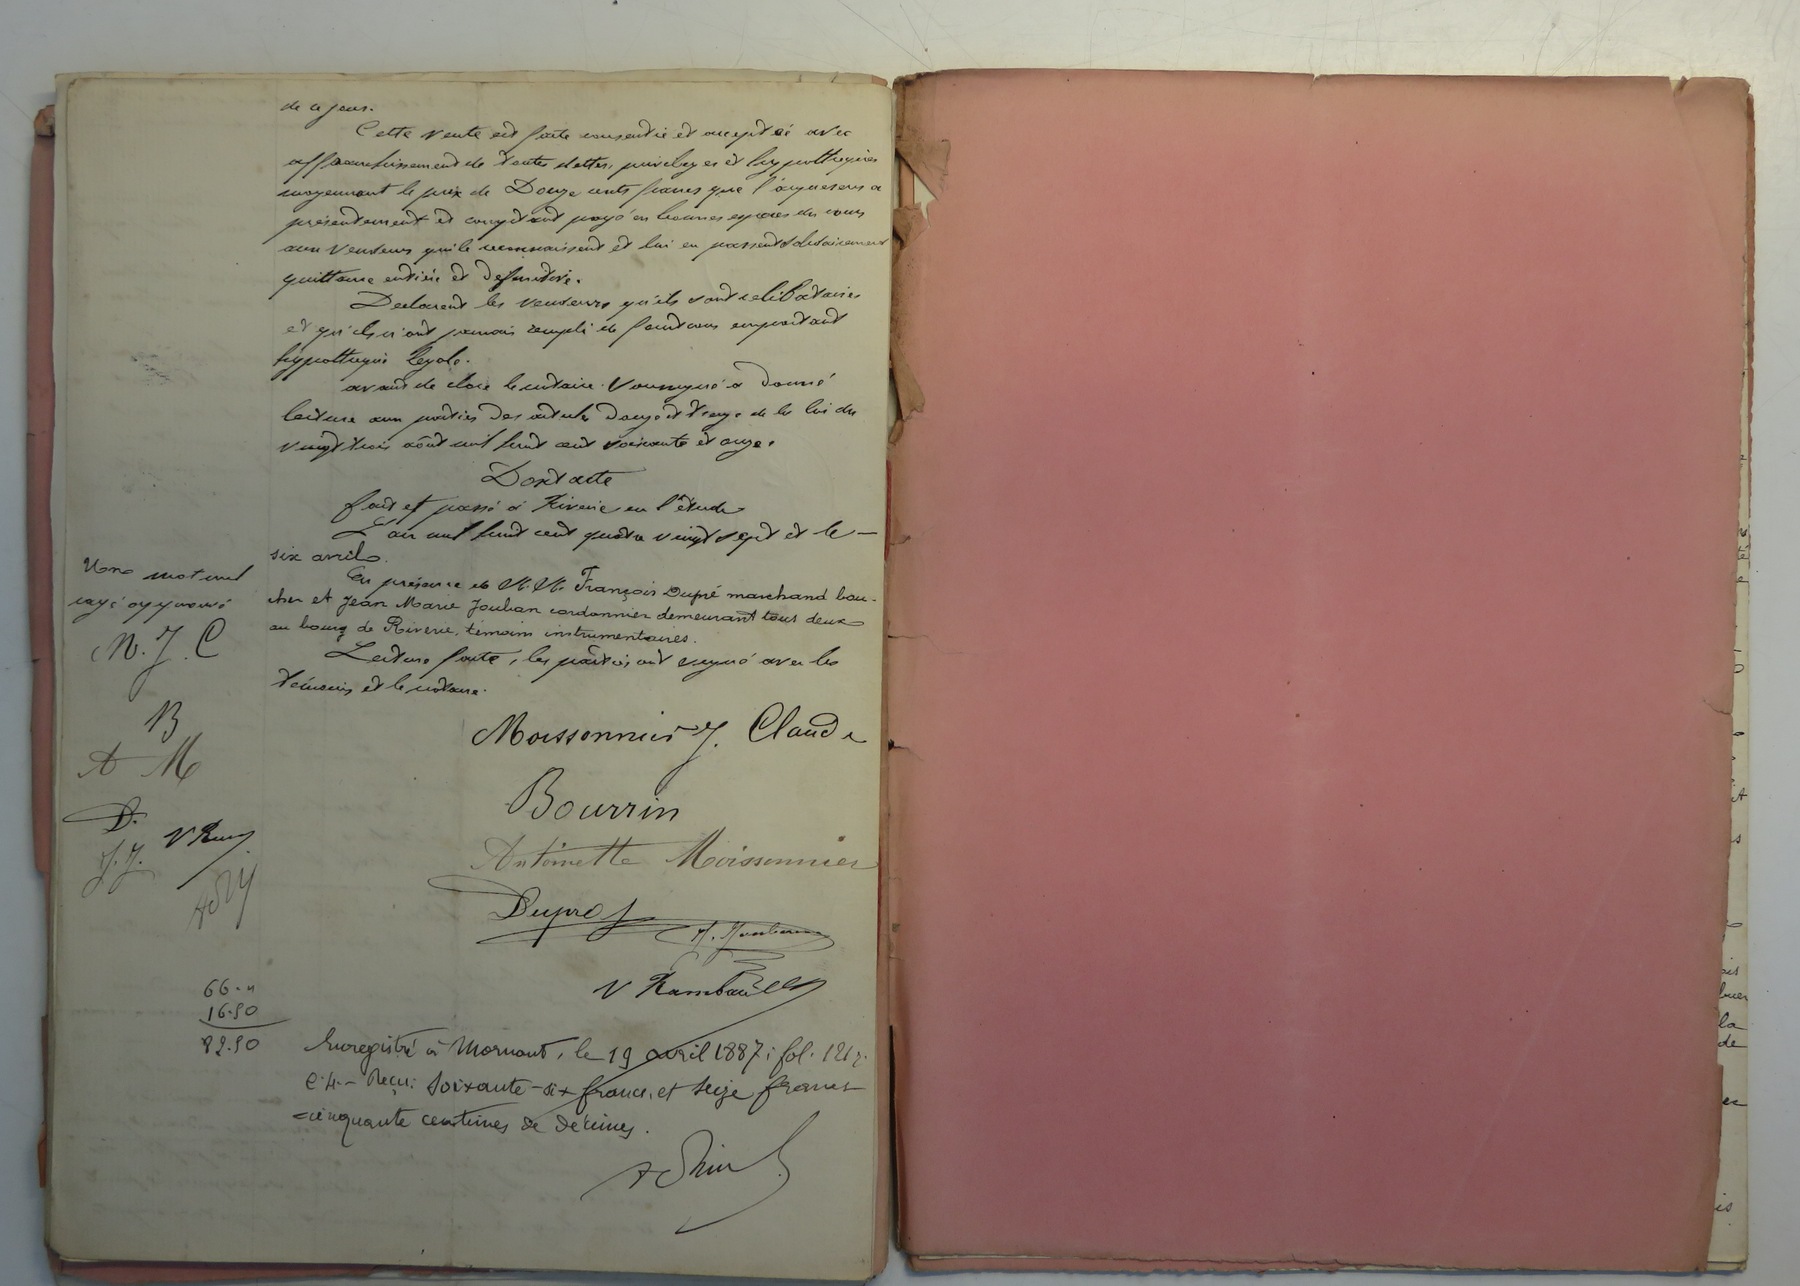 de ce jour.
Cette vente est faite consentie et acceptée avec
affranchissement de toutes dettes, privilèges et hypothèques
moyennant le prix de Douze cents francs que l'acquéreur a
présentement et comptant payé en bonnes espèces du cours
aux vendeurs qui le reconnaissent et lui en passent solidairement
quittance entière et définitive.
Déclarent les vendeurs qu'ils sont célibataires
et qu'ils n'ont jamais rempli de fonctions emportant
hypothèque légale.
avant de clore le notaire soussigné a donné
lecture aux parties des articles douze et treize de la loi du
vingt trois août mil huit cent soixante et onze.
Dont acte
fait et passé à Riverie en l'étude
L'an mil huit cent quatre vingt sept et le —
six avril.
En présence de M.M. François Dupré marchand bou-
cher et Jean Marie Jouban cordonnier demeurant tous deux
au bourg de Riverie, témoins instrumentaires.
Lecture faite, les parties ont signé avec les
témoins et le notaire.
Un mot nul
rayé approuvé
M. J. C
B
A M
D.
J. J.
Moissonnier J. Claude
Bourrin
Antoinette Moissonnier
Dupré
V Rambaud
66.
16.50
82.50
Enregistré à Mornant, le 19 avril 1887; fol.
c. 4. – Reçu: Soixante-six francs, et seize francs
cinquante centimes de décimes.